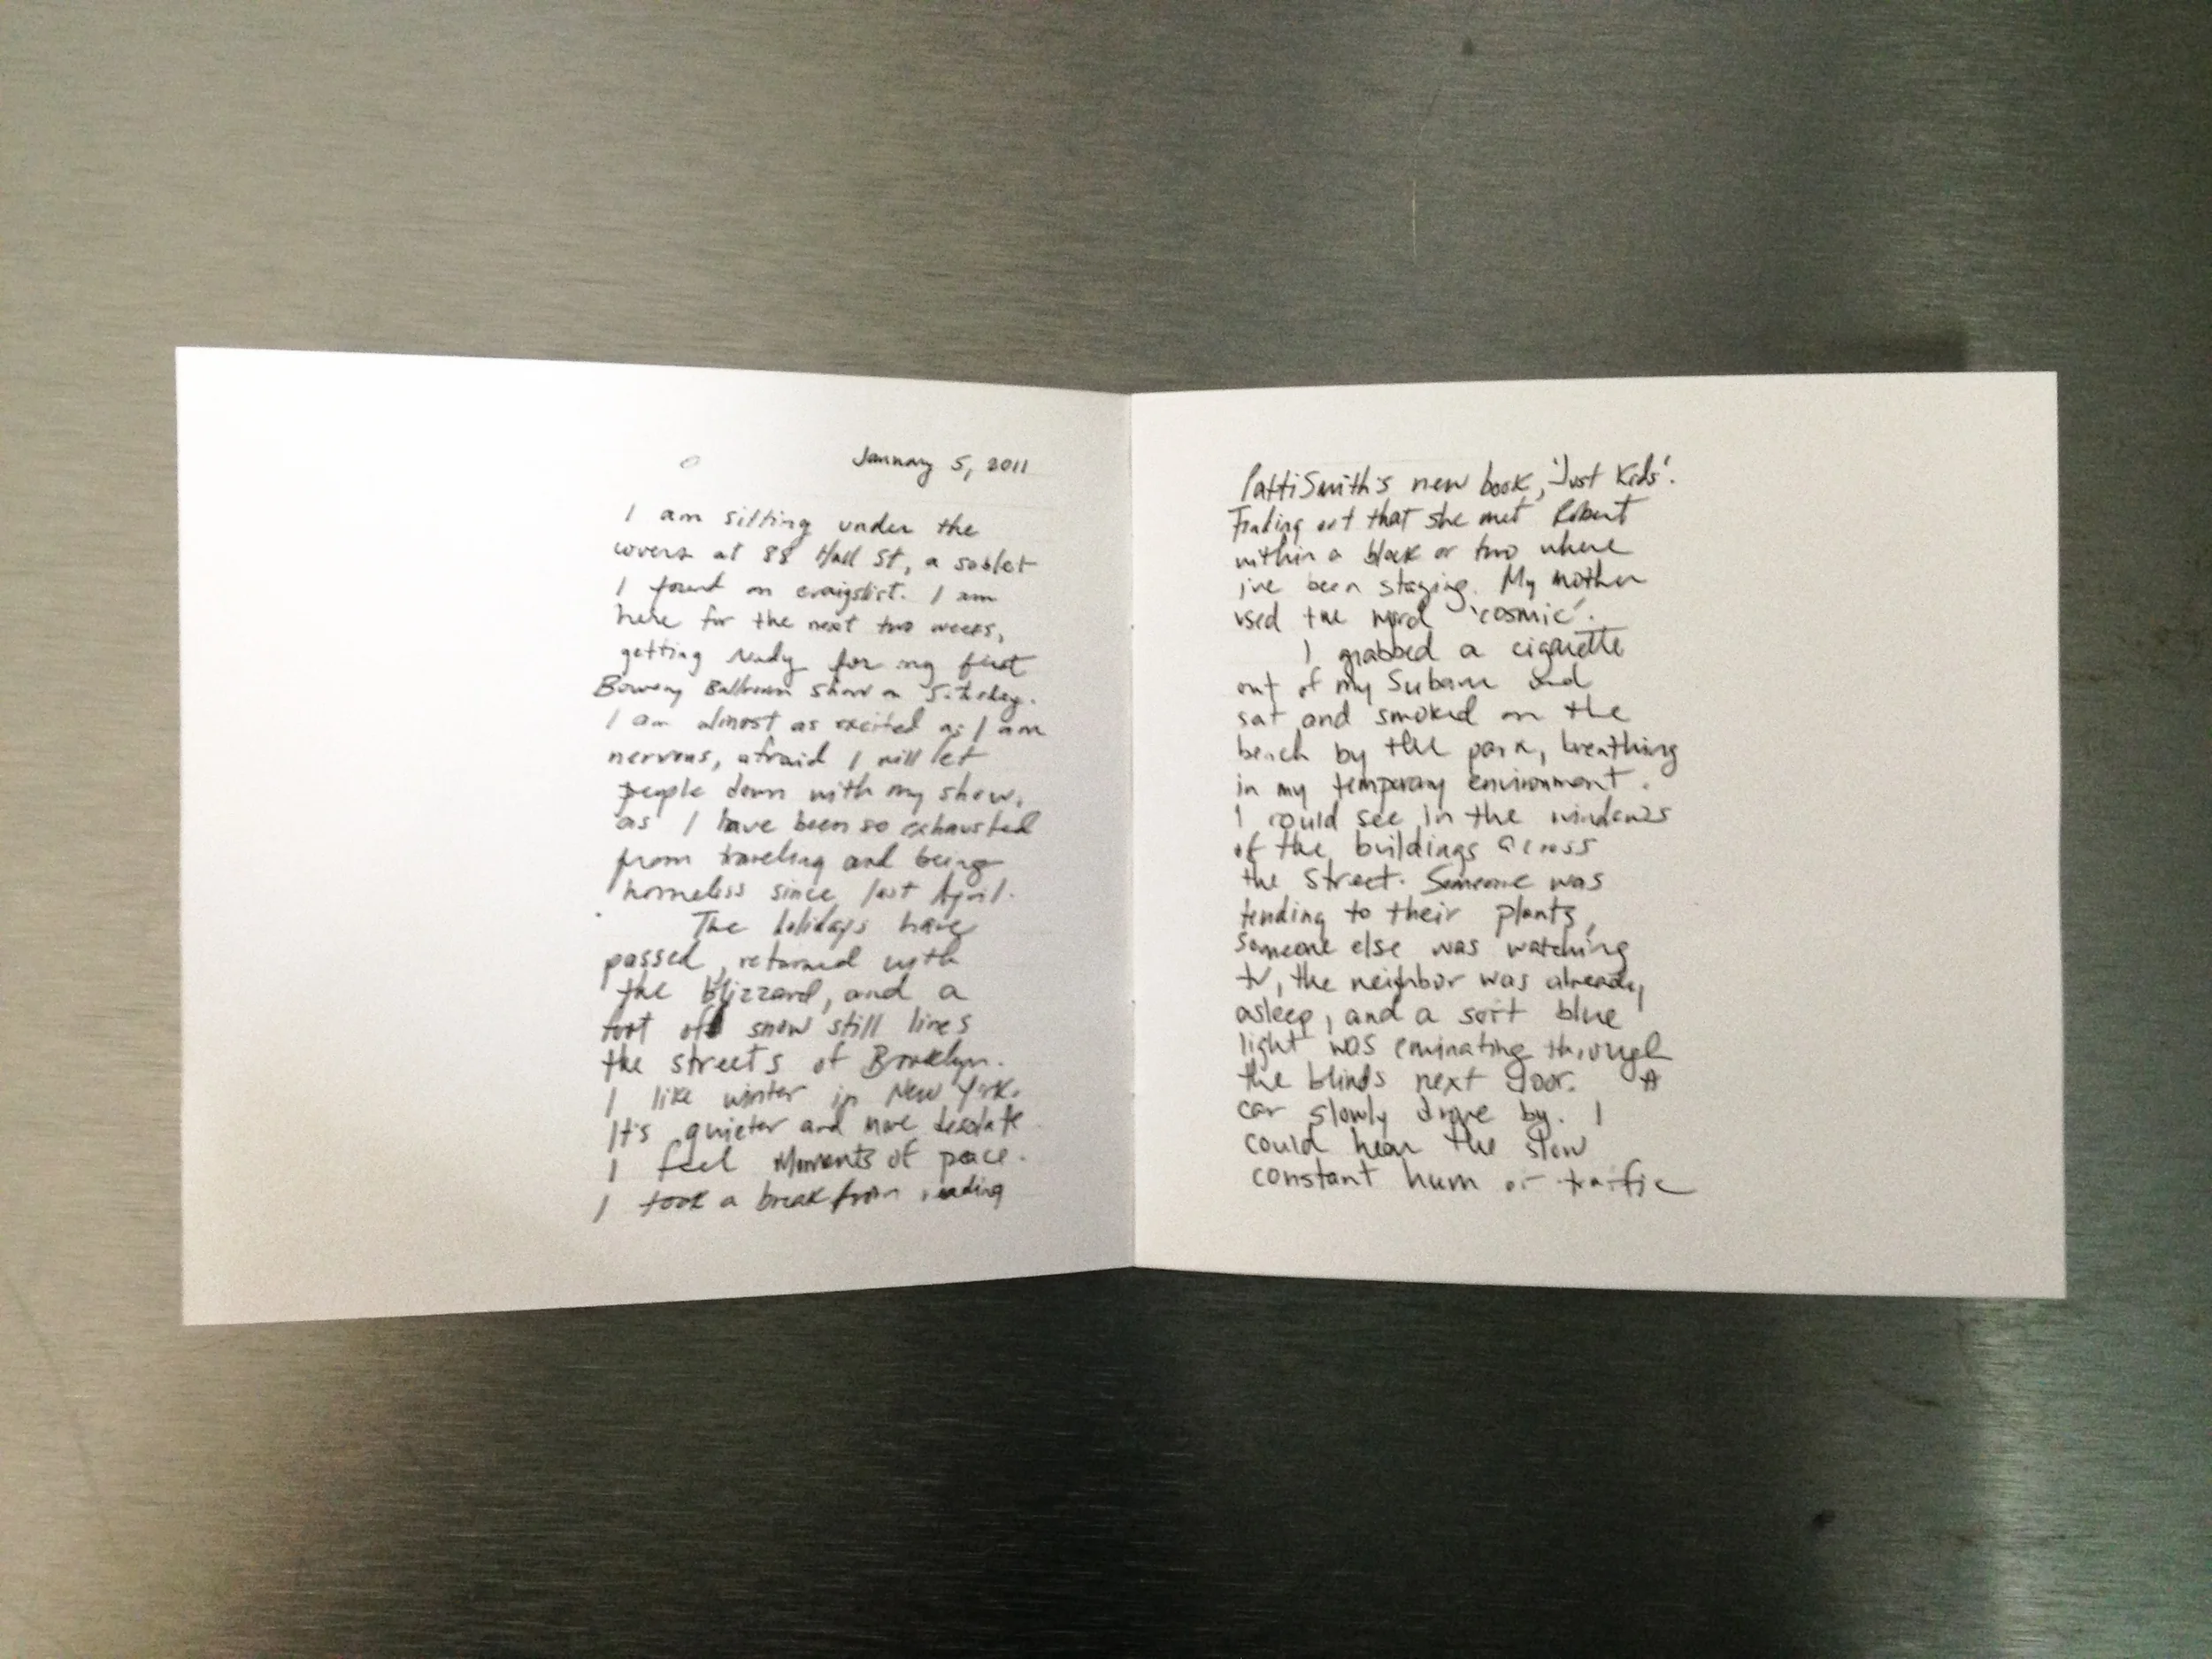 January 5, 2011
I am sitting under the
covers at 88 Hall St, a sublet
I found on craigslist. I am
here for the next two weeks,
getting ready for my first
Bowery Ballroom show on Saturday.
I am almost as excited as I am
nervous, afraid I will let
people down with my show,
as I have been so exhausted
from traveling and being
homeless since last April.
The holidays have
passed, returned with
the blizzard, and a
foot of snow still lines
the streets of Brooklyn.
I like winter in New York.
It's quieter and more desolate.
I feel moments of peace.
I took a break from reading
Patti Smith's new book, 'Just Kids'.
Finding out that she met Robert
within a block or two where
i've been staying. My mother
used the word 'cosmic'.
I grabbed a cigarette
out of my Subaru and
sat and smoked on the
bench by the park, breathing
in my temporary environment.
I could see in the windows
of the buildings across
the street. Someone was
tending to their plants,
someone else was watching
tv, the neighbor was already
asleep, and a soft blue
light was eminating through
the blinds next door. A
car slowly drove by. I
could hear the slow
constant hum of traffic